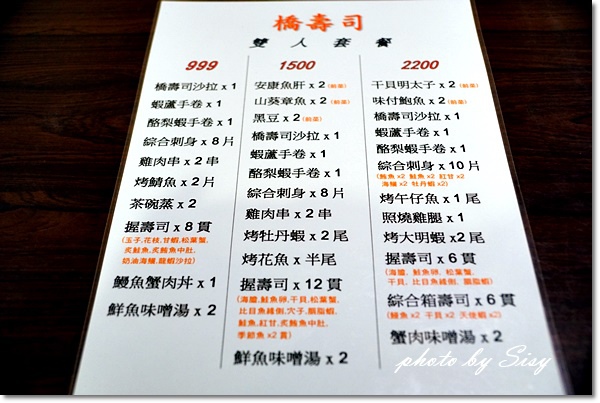 橋壽司
雙人套餐
999
橋壽司沙拉 x 1
蝦蘆手卷 x 1
酪梨蝦手卷 x 1
綜合刺身 x 8 片
雞肉串 x 2 串
烤鯖魚 x 2 片
茶碗蒸 x 2
握壽司 x 8 貫
(玉子,花枝,甘蝦,松葉蟹,
炙鮭魚,炙鮪魚中肚,
奶油海鱺,龍蝦沙拉)
鰻魚蟹肉丼 x 1
鮮魚味噌湯 x 2
1500
安康魚肝 x 2 (前菜)
山葵章魚 x 2 (前菜)
黑豆 x 2 (前菜)
橋壽司沙拉 x 1
蝦蘆手卷 x 1
酪梨蝦手卷 x 1
綜合刺身 x 8 片
雞肉串 x 2 串
烤牡丹蝦 x 2 尾
烤花魚 x 半尾
握壽司 x 12 貫
(海膽,鮭魚卵,干貝,松葉蟹,
比目魚緣側,穴子,胭脂蝦,
鮭魚,紅甘,炙鮪魚中肚,
季節魚 x 2 貫)
鮮魚味噌湯 x 2
2200
干貝明太子 x 2 (前菜)
味付鮑魚 x 2 (前菜)
橋壽司沙拉 x 1
蝦蘆手卷 x 1
酪梨蝦手卷 x 1
綜合刺身 x 10 片
(鮪魚 x2 鮭魚 x2 紅甘 x2
海鱺 x2 牡丹蝦 x2)
烤午仔魚 x 1 尾
照燒雞腿 x 1
烤大明蝦 x2 尾
握壽司 x 6 貫
(海膽, 鮭魚卵, 松葉蟹,
干貝, 比目魚緣側, 胭脂蝦)
綜合箱壽司 x 6 貫
(鰻魚 x2 干貝 x2 天使蝦 x2)
蟹肉味噌湯 x 2
photo by Sisy